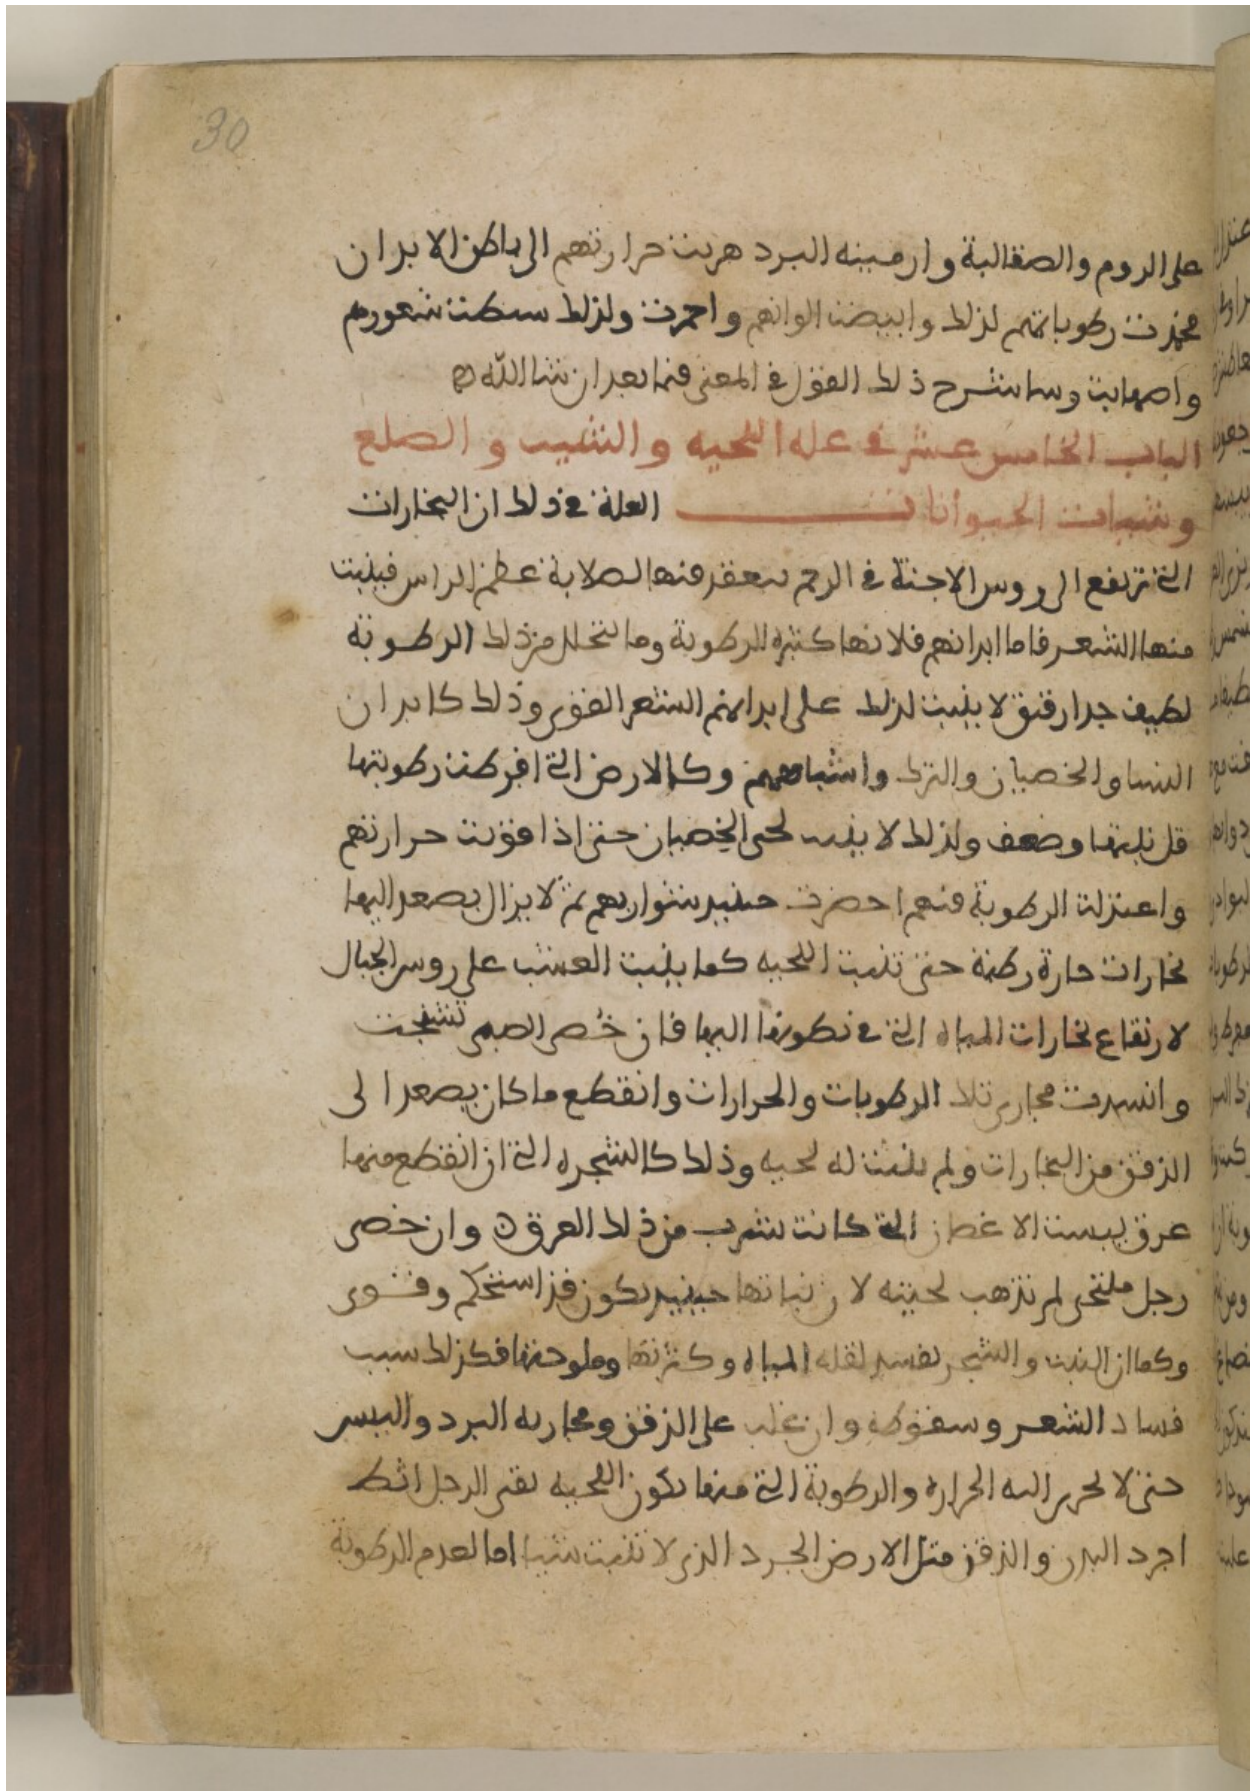 30
على الروم والصقالبة وارمينه البرد هربت حرارتهم الى باطن الابدان
فجمدت رطوباتهم لذلك وابيضت الوانهم واحمرت ولذلك سبطت شعورهم
واصهابت وسانشرح ذلك القول في المعنى فيما بعد ان شا الله
الباب الخامس عشر في عله اللحيه والشيب والصلع
وشيات الحيوانات العلة في ذلك ان البخارات
التي ترتفع الى روس الاجنة في الرحم ينعقد منها لصلابة عظم الراس فينبت
منها الشعر فاما ابدانهم فلانها كثيره الرطوبة وما يتحلل من ذلك الرطوبة
لطيف جدا رقيق لا ينبت لذلك على ابدانهم الشعر القوي وذلك كابدان
النسا والخصيان والترك واشباههم وكالارض التي افرطت رطوبتها
قل نبتها وضعف ولذلك لا ينبت لحى الخصيان حتى اذا قويت حرارتهم
واعتزلت الرطوبة منهم احضرت حينيد شواربهم ثم لا يزال يصعد اليها
بخارات حارة رطبة حتى تنبت اللحيه كما ينبت العشب على روس الجبال
لارتفاع بخارات المياه التي في بطونها اليها فان خصى الصبى تشنجت
وانسدت مجارى تلك الرطوبات والحرارات وانقطع ما كان يصعد الى
الذقن من البخارات ولم ينبت له لحيه وذلك كالشجره التي ان انقطع منها
عرق يبست الاغصان التي كانت تشرب من ذلك العرق وان خصى
رجل ملتحى لم تذهب لحيته لان نباتها حينيد يكون قد استحكم وقوى
وكما ان النبت والشجر يفسد لقله المياه وكثرتها وملوحتها فكذلك سبب
فساد الشعر وسقوطه وان غلب على الذقن ومجاريه البرد واليبس
حتى لا يجرى اليه الحراره والرطوبة التي منها يكون اللحيه بقى الرجل اثط
اجرد البدن والذقن مثل الارض الجرد الذى لا تنبت شيا اما لعدم الرطوبة